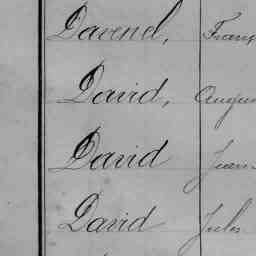 Davenel, Franç
David, Augus
David Jean
David Jules